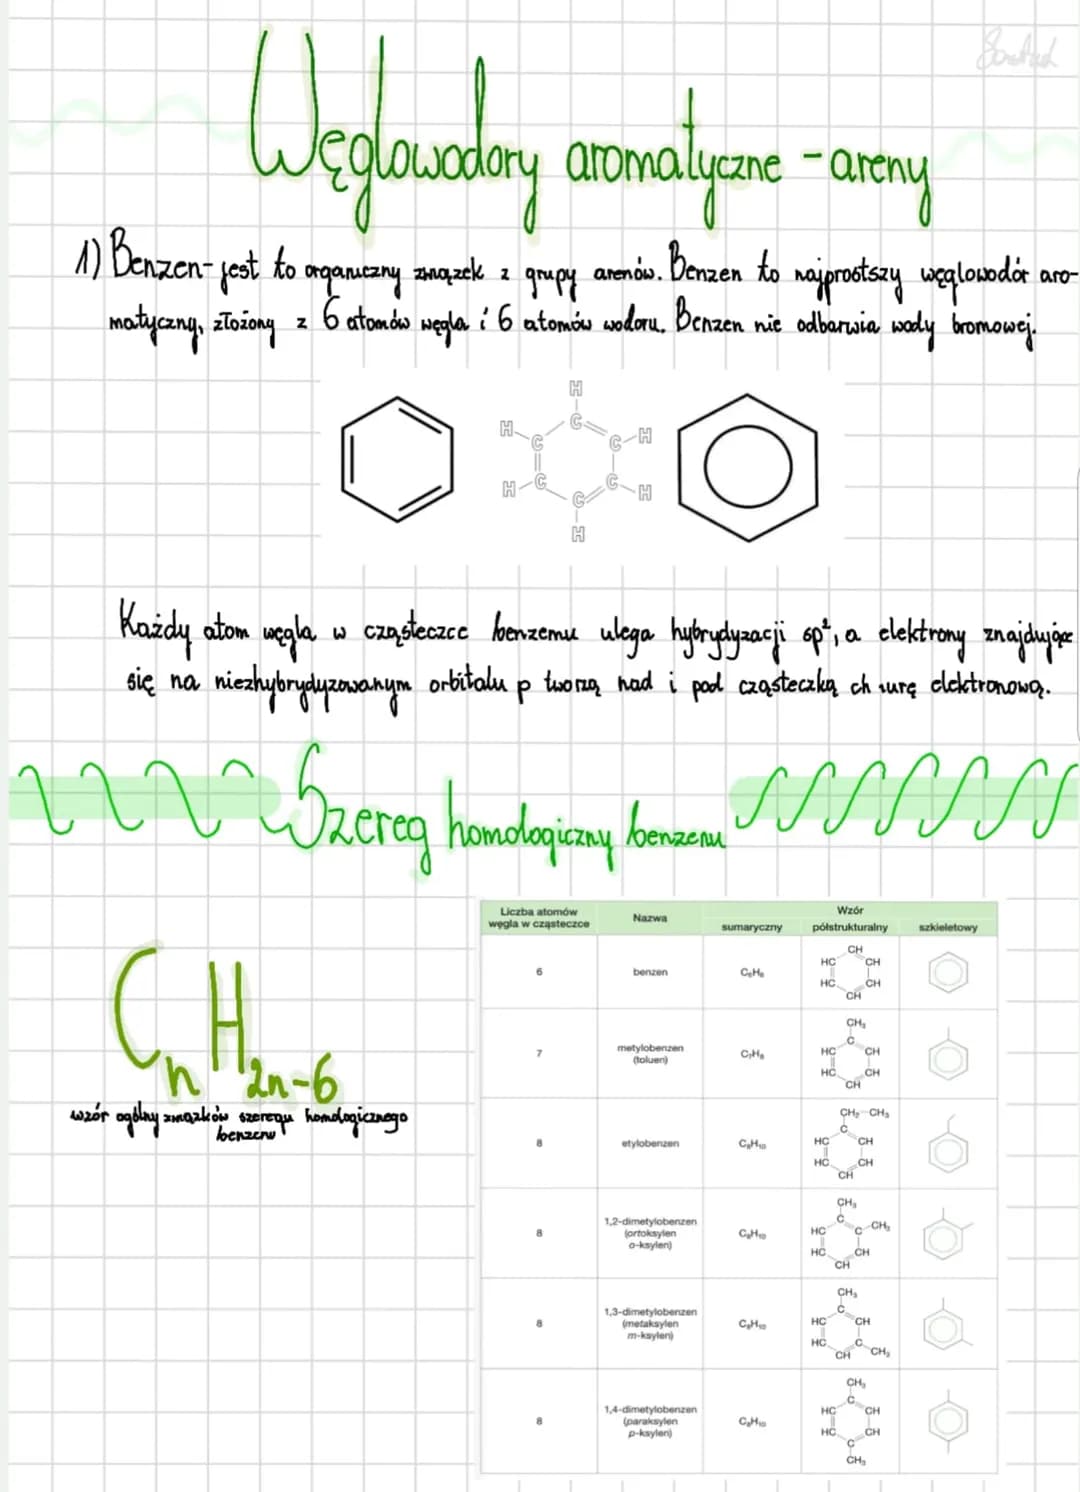 Węglowodory aromatyczne - areny
1) Benzen - jest to organiczny związek z grupy arenów. Benzen to najprostszy węglowodór aro-
matyczny, złożony z 6 atomów węgla i 6 atomów wodoru. Benzen nie odbarwia wody bromowej.
H
H C H
C C
H C C H
C
H
Każdy atom węgla w cząsteczce benzemu ulega hybrydyzacji sp², a elektrony znajdujące
się na niezhybrydyzowanym orbitalu p tworzą nad i pod cząsteczką chmurę elektronową.
Szereg homologiczny benzenu
CnH2n-6
wzór ogólny związków szeregu homologicznego
benzenu
Liczba atomów węgla w cząsteczce Nazwa Wzór
sumaryczny półstrukturalny szkieletowy
6 benzen C₆H₆ CH HC CH HC CH CH
7 metylobenzen (toluen) C₇H₈ CH₃ C HC CH HC CH CH
8 etylobenzen C₈H₁₀ CH₂ CH₃ C HC CH HC CH CH
8 1,2-dimetylobenzen (ortoksylen o-ksylen) C₈H₁₀ CH₃ C HC C CH₃ HC CH CH
8 1,3-dimetylobenzen (metaksylen m-ksylen) C₈H₁₀ CH₃ C HC CH HC C CH CH₃
8 1,4-dimetylobenzen (paraksylen p-ksylen) C₈H₁₀ CH₃ C HC CH HC CH C CH₃